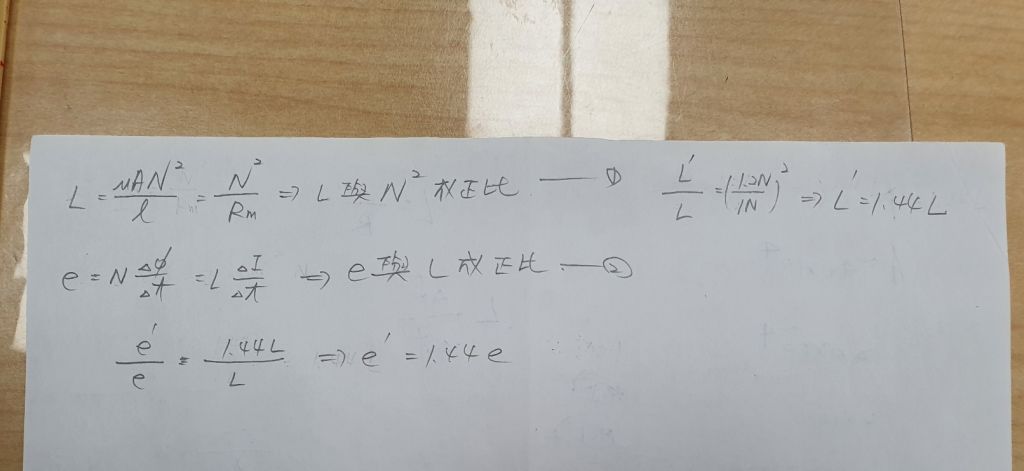 L = μAN² / l = N² / Rm ⇒ L 與 N² 成正比 —— ①
L' / L = (1.2N / 1N)² ⇒ L' = 1.44 L
e = N Δϕ / Δt = L ΔI / Δt ⇒ e 與 L 成正比 —— ②
e' / e = 1.44L / L ⇒ e' = 1.44 e